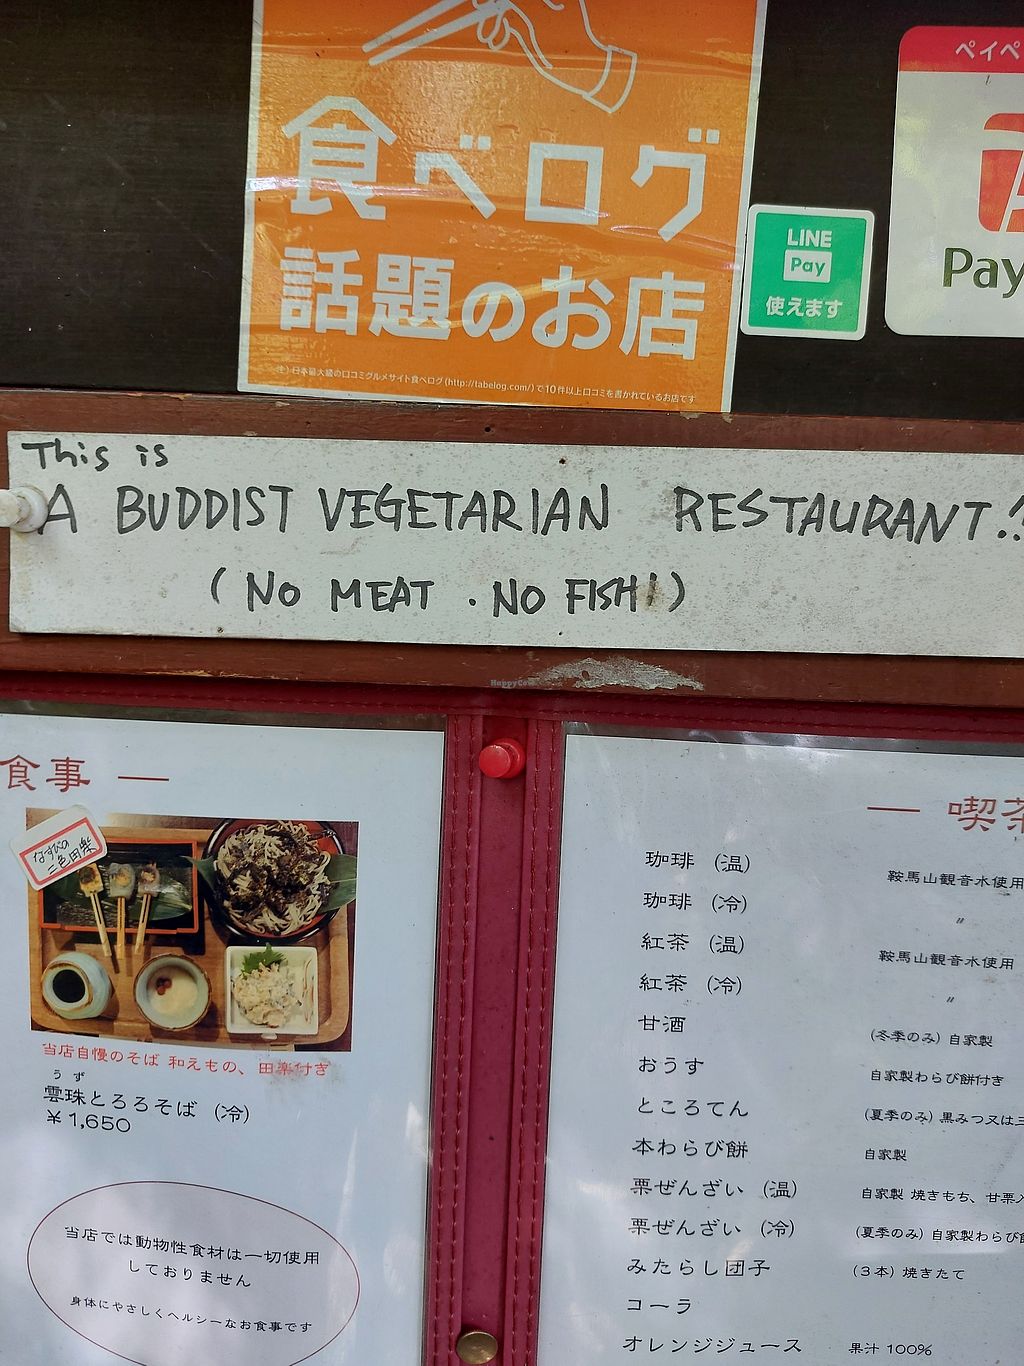 食べログ
話題のお店
注)日本最大級の口コミグルメサイト食べログ(http://tabelog.com/)で10件以上口コミを書かれているお店です
LINE
Pay
使えます
ペイペ
Pay
This is
A BUDDIST VEGETARIAN RESTAURANT!
(NO MEAT . NO FISH!)
HappyCow
食事 —
なすびの
二色田楽
当店自慢のそば 和えもの、田楽付き
うず
雲珠とろろそば (冷)
¥1,650
当店では動物性食材は一切使用
しておりません
身体にやさしくヘルシーなお食事です
— 喫茶
珈琲 (温) 鞍馬山観音水使用
珈琲 (冷) 〃
紅茶 (温) 鞍馬山観音水使用
紅茶 (冷) 〃
甘酒 (冬季のみ) 自家製
おうす 自家製わらび餅付き
ところてん (夏季のみ) 黒みつ又は三
本わらび餅 自家製
栗ぜんざい (温) 自家製 焼きもち、甘栗入
栗ぜんざい (冷) (夏季のみ) 自家製わらび餅
みたらし団子 (3本) 焼きたて
コーラ
オレンジジュース 果汁 100%